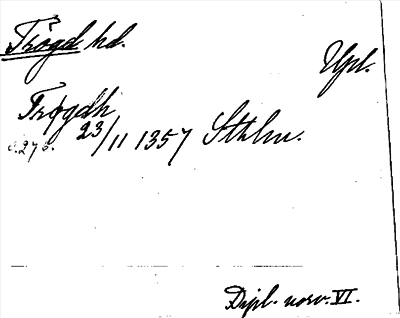 Trögd hd.
Upl.
Trøgdh
s. 276. 23/11 1357 Sthlm.
Dipl. norv. VI.